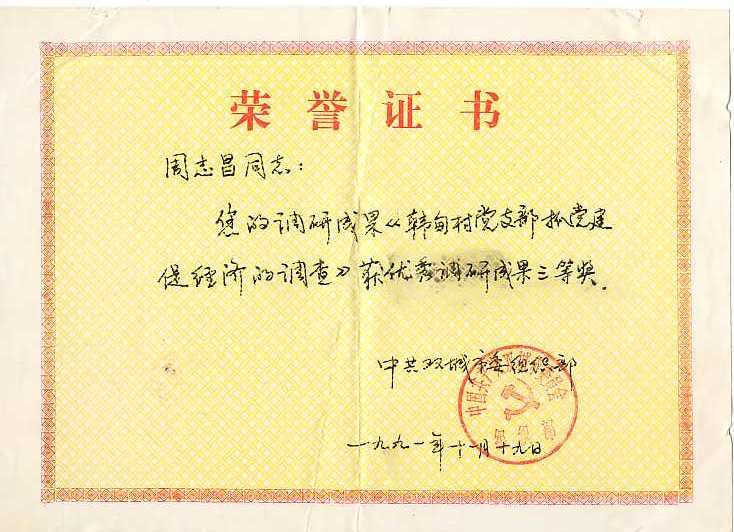 荣誉证书
周志昌同志：
您的调研成果《韩甸村党支部抓党建
促经济的调查》获优秀调研成果三等奖.
中共双城市委组织部
一九九一年十一月十九日
组织部